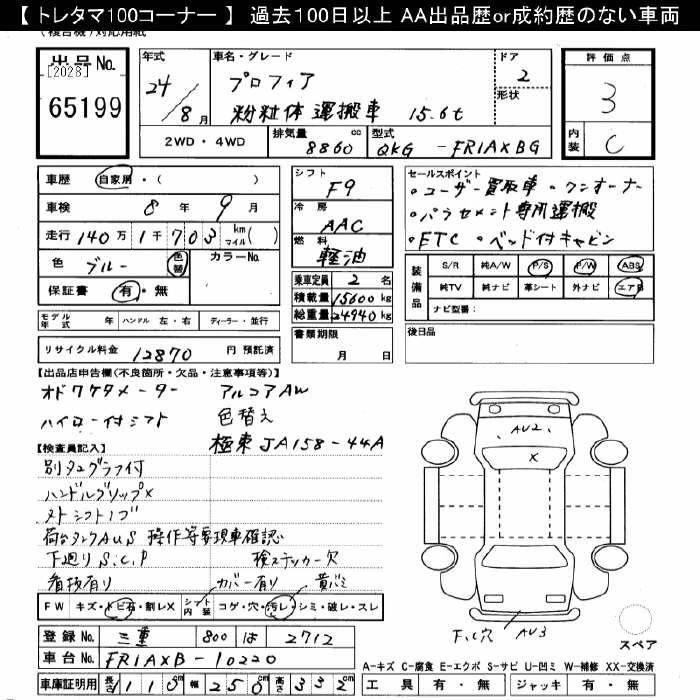 【 トレタマ100コーナー 】 過去100日以上 AA出品歴or成約歴のない車両
出品No.
[2028]
65199
年式 24/8月
車名・グレード プロフィア
粉粒体運搬車 15.6t
ドア 2
形状
2WD・4WD
排気量 8860 cc
型式 QKG-FR1AXBG
評価点 3
内装 C
車歴 自家用・( )
車検 8年 9月
走行 140万1千703 km マイル( )
色 ブルー 色替 カラーNo.
保証書 有・無
モデル年式 年 ハンドル 左・右 ディーラー・並行
リサイクル料金 12870 円 預託済
シフト F9
冷房 AAC
燃料 軽油
乗車定員 2 名
積載量 15600kg
総重量 24940kg
書類期限
月 日
セールスポイント
・ユーザー買取車・ワンオーナー
・パラセメント専用運搬
・ETC・ベッド付キャビン
装備品
S/R 純A/W P/S P/W ABS
純TV 純ナビ 革シート 外ナビ エアB
ナビ型番:
後日品
【出品店申告欄(不良箇所・欠品・注意事項等)】
オドワケタメーター アルコアAW
ハイロー付シフト 色替え
極東JA158-44A
【検査員記入】
別タコグラフ付
ハンドルグリップX
メドシフトノブ
荷台タンクAUS 操作等要現車確認
下廻りS.C.P 検ステッカー欠
看板有り カバー有り 黄バミ
FW キズ・トビ石・割レX シート内装 コゲ・穴・汚レ・シミ・破レ・スレ
登録No. 三重 800 は 2712
車台No. FR1AXB-10220
車庫証明用 長さ 110cm 幅 250cm 高さ 332cm
AU2
X
下、穴
AU3
スペア
A-キズ C-腐食 E-エクボ S-サビ U-凹ミ W-補修 XX-交換済
工具 有・無 ジャッキ 有・無